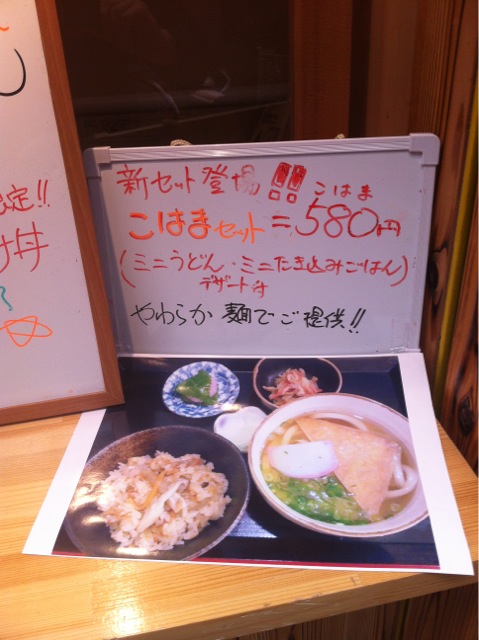 定!!
け丼
新セット登場!!
こはま
こはまセット=580円
(ミニうどん・ミニたき込みごはん)
デザート付
やわらか麺でご提供!!